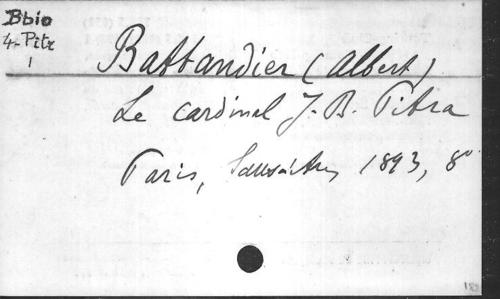 Bbio
4. Pitr
1
Battandier (Albert)
Le cardinal J.-B. Pitra
Paris, Sauvaitre, 1893, 8°